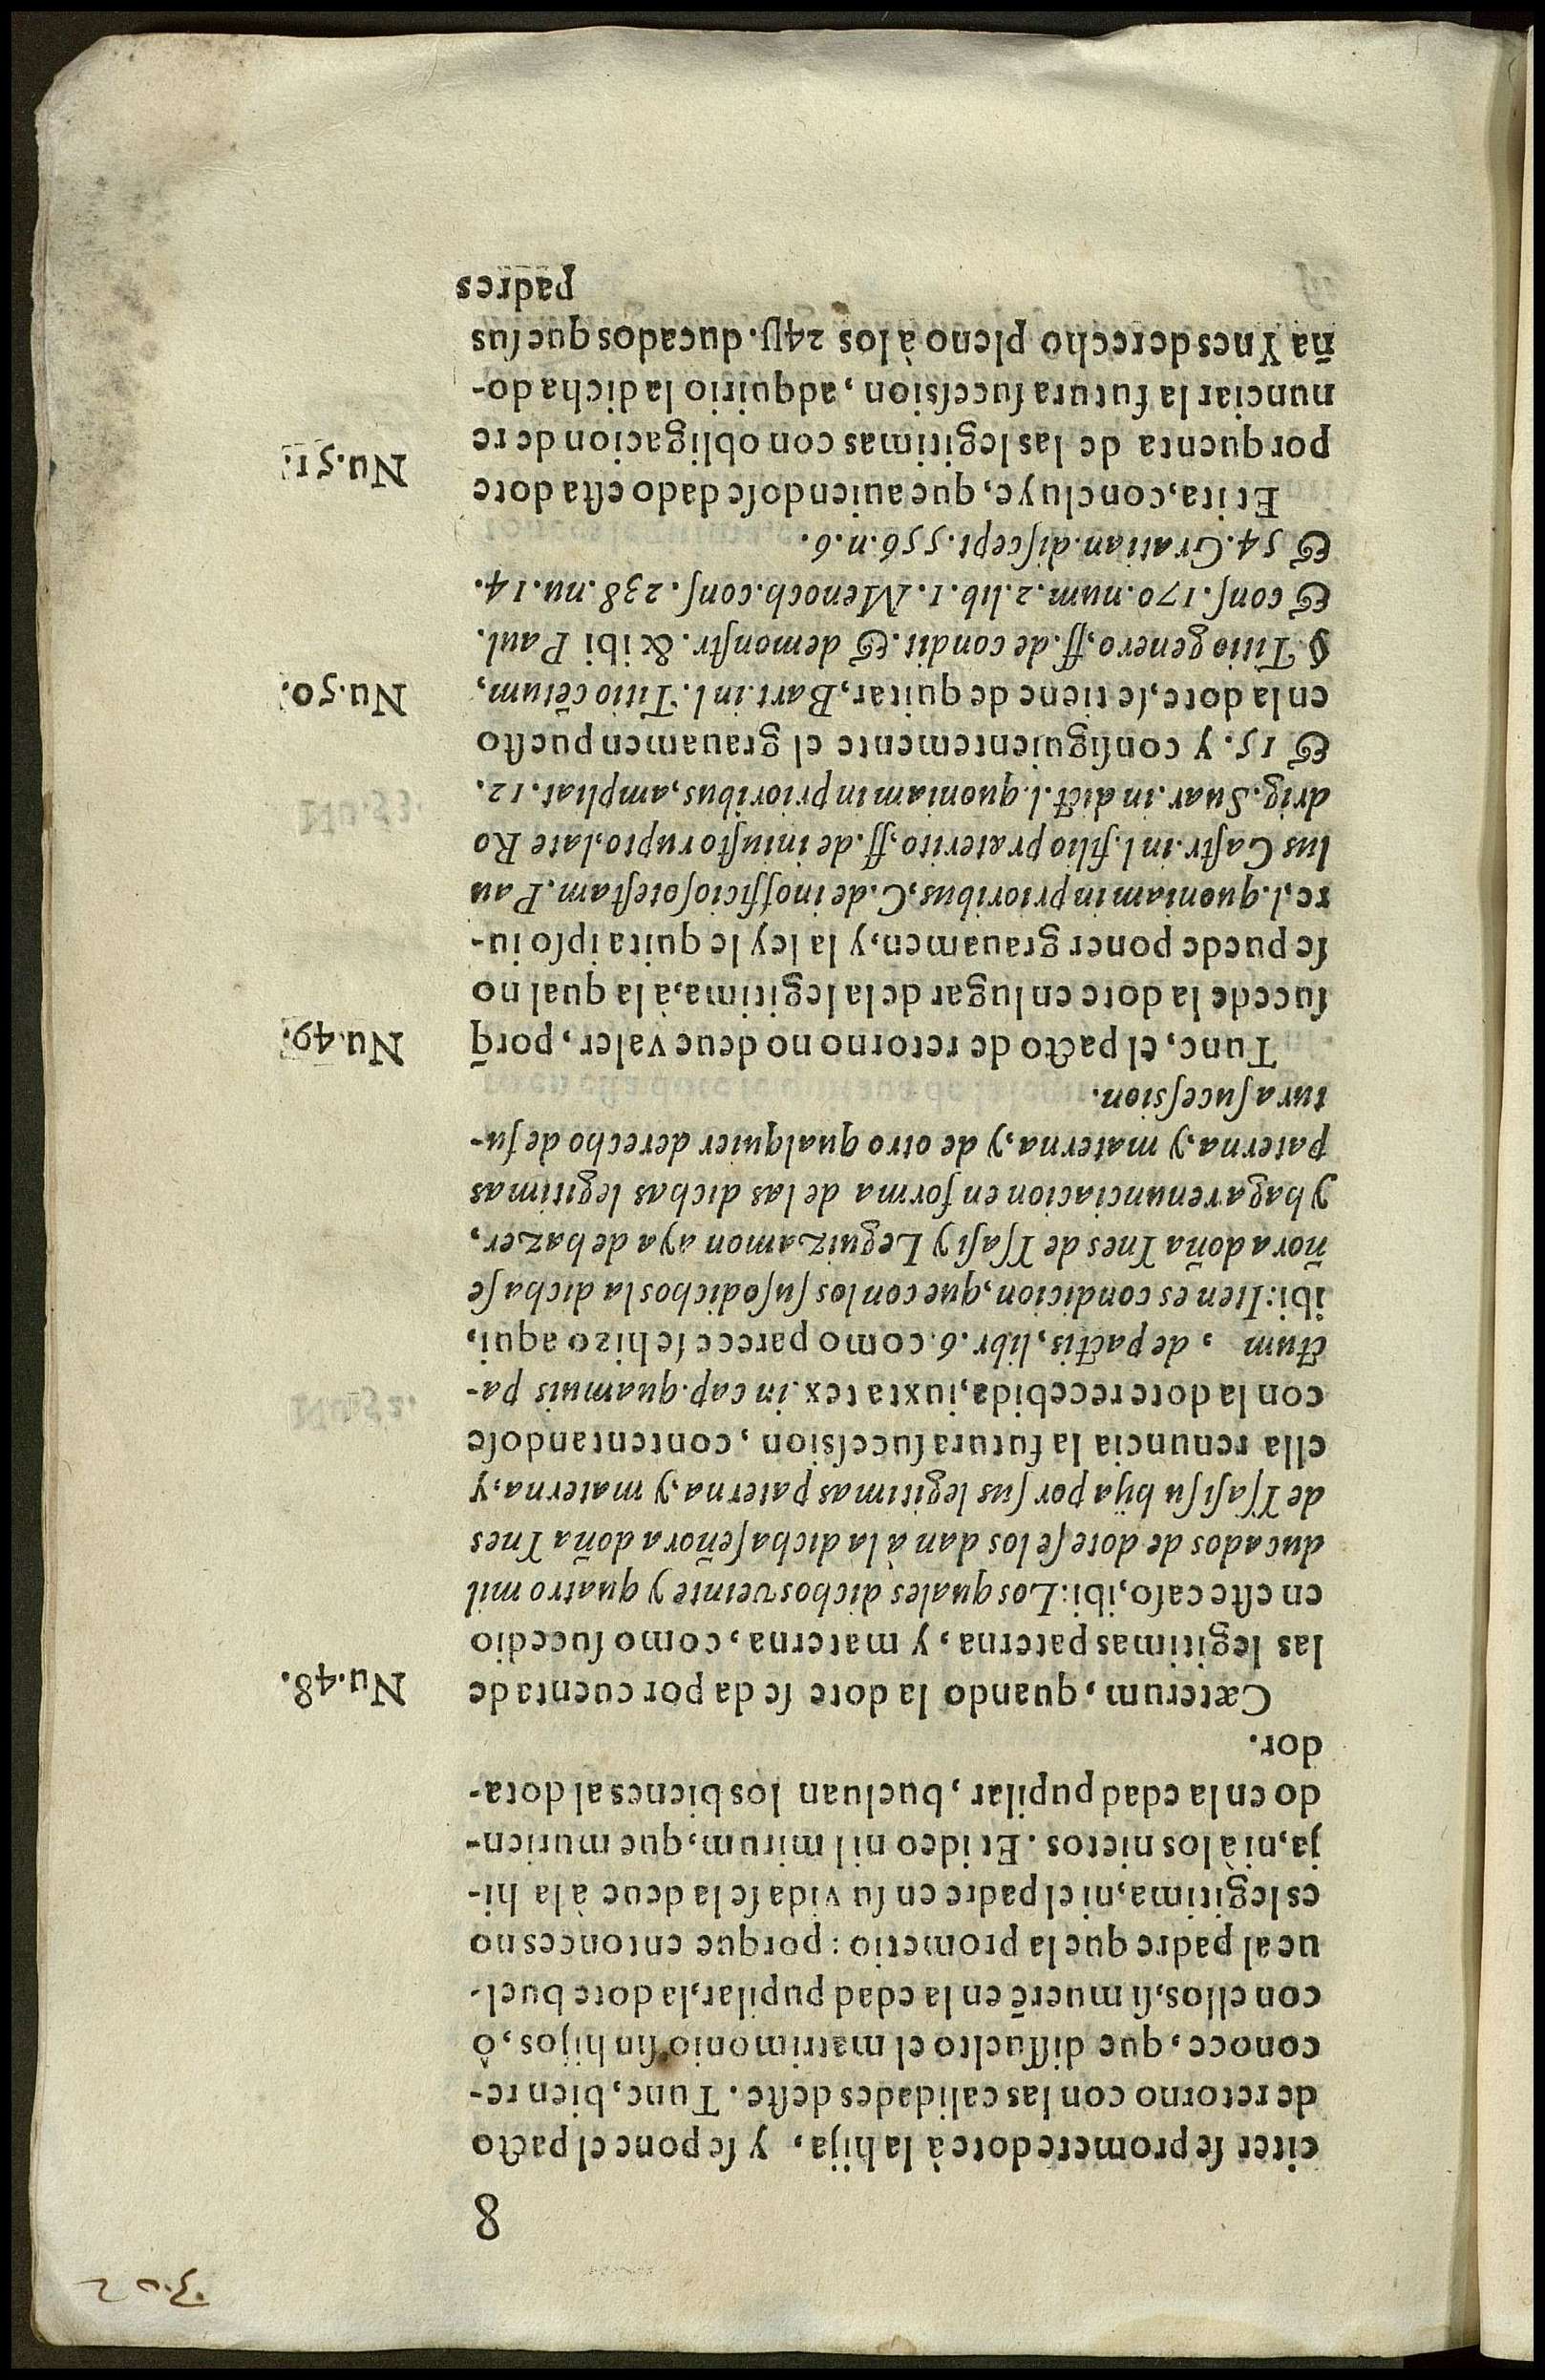 8
citer se promete dote à la hija, y se pone el pacto
de retorno con las calidades deste. Tunc, bien re-
conoce, que dissuelto el matrimonio sin hijos, ò
con ellos, si muerẽ en la edad pupilar, la dote buel-
ue al padre que la prometio: porque entonces no
es legitima, ni el padre en su vida se la deue à la hi-
ja, ni à los nietos. Et ideo nil mirum, que murien-
do en la edad pupilar, bueluan los bienes al dota-
dor.
Cæterum, quando la dote se da por cuenta de
Nu.48.
las legitimas paterna, y materna, como sucedio
en este caso, ibi: Los quales dichos veinte y quatro mil
ducados de dote se los dan à la dicha señora doña Ynes
de Yssasi su hija por sus legitimas paterna y materna, y
ella renuncia la futura sucession, contentandose
con la dote recebida, iuxta tex. in cap. quamuis pa-
ctum, de pactis, libr. 6. como parece se hizo aqui,
ibi: Iten es condicion, que con los susodichos la dicha se
ñora doña Ynes de Yssasi y Leguizamon aya de hazer,
y haga renunciacion en forma de las dichas legitimas
paterna y materna, y de otro qualquier derecho de fu-
tura sucession.
Tunc, el pacto de retorno no deue valer, porq̃
Nu.49.
sucede la dote en lugar de la legitima, à la qual no
se puede poner grauamen, y la ley le quita ipso iu-
re, l. quoniam in prioribus, C. de inofficioso testam. Pau
lus Castr. in l. filio præterito, ff. de iniusto rupto, late Ro
drig. Suar. in dict. l. quoniam in prioribus, ampliat. 12.
& 15. y consiguientemente el grauamen puesto
en la dote, se tiene de quitar, Bart. in l. Titio cētum,
Nu.50.
§ Titio genero, ff. de condit. & demonstr. & ibi Paul.
& cons. 170. num. 2. lib. 1. Menoch. cons. 238. nu. 14.
& 54. Gratian. discept. 556. n. 6.
Et ita, concluye, que auiendose dado esta dote
Nu.51.
por quenta de las legitimas con obligacion de re
nunciar la futura sucession, adquirio la dicha do-
ña Ynes derecho pleno à los 24U. ducados que sus
padres